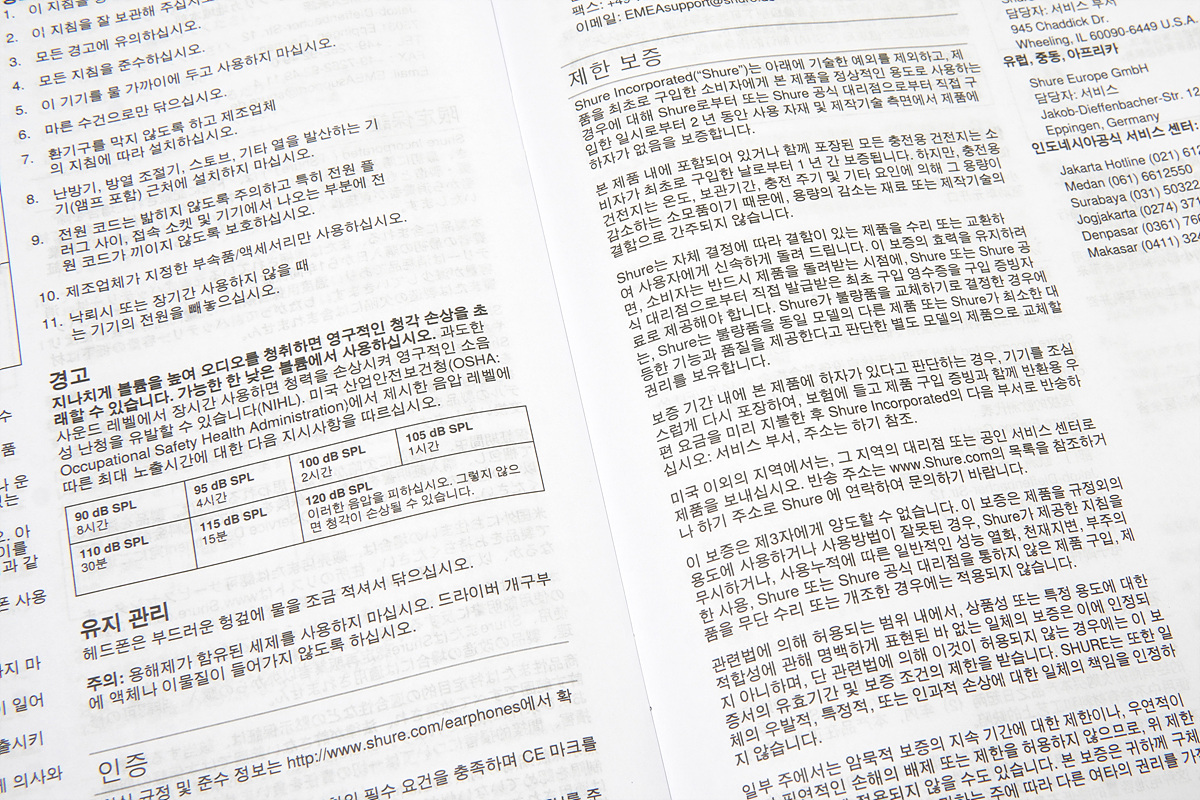 1. 이 지침을
2. 이 지침을 잘 보관해 주십시오.
3. 모든 경고에 유의하십시오.
4. 모든 지침을 준수하십시오.
5. 이 기기를 물 가까이에 두고 사용하지 마십시오.
6. 마른 수건으로만 닦으십시오.
7. 환기구를 막지 않도록 하고 제조업체
의 지침에 따라 설치하십시오.
8. 난방기, 방열 조절기, 스토브, 기타 열을 발산하는 기
기(앰프 포함) 근처에 설치하지 마십시오.
9. 전원 코드는 밟히지 않도록 주의하고 특히 전원 플
러그 사이, 접속 소켓 및 기기에서 나오는 부분에 전
원 코드가 끼이지 않도록 보호하십시오.
10. 제조업체가 지정한 부속품/액세서리만 사용하십시오.
11. 낙뢰시 또는 장기간 사용하지 않을 때
는 기기의 전원을 빼놓으십시오.
경고
지나치게 볼륨을 높여 오디오를 청취하면 영구적인 청각 손상을 초
래할 수 있습니다. 가능한 한 낮은 볼륨에서 사용하십시오. 과도한
사운드 레벨에서 장시간 사용하면 청력을 손상시켜 영구적인 소음
성 난청을 유발할 수 있습니다(NIHL). 미국 산업안전보건청(OSHA:
Occupational Safety Health Administration)에서 제시한 음압 레벨에
따른 최대 노출시간에 대한 다음 지시사항을 따르십시오.
90 dB SPL
8시간
95 dB SPL
4시간
100 dB SPL
2시간
105 dB SPL
1시간
110 dB SPL
30분
115 dB SPL
15분
120 dB SPL
이러한 음압을 피하십시오. 그렇지 않으
면 청각이 손상될 수 있습니다.
유지 관리
헤드폰은 부드러운 헝겊에 물을 조금 적셔서 닦으십시오.
주의: 용해제가 함유된 세제를 사용하지 마십시오. 드라이버 개구부
에 액체나 이물질이 들어가지 않도록 하십시오.
인증
규정 및 준수 정보는 http://www.shure.com/earphones에서 확
필수 요건을 충족하며 CE 마크를
이메일: EMEAsupport@shure.
제한 보증
Shure Incorporated("Shure")는 아래에 기술한 예외를 제외하고, 제
품을 최초로 구입한 소비자에게 본 제품을 정상적인 용도로 사용하는
경우에 대해 Shure로부터 또는 Shure 공식 대리점으로부터 직접 구
입한 일시로부터 2 년 동안 사용 자재 및 제작기술 측면에서 제품에
하자가 없음을 보증합니다.
본 제품 내에 포함되어 있거나 함께 포장된 모든 충전용 건전지는 소
비자가 최초로 구입한 날로부터 1 년 간 보증됩니다. 하지만, 충전용
건전지는 온도, 보관기간, 충전 주기 및 기타 요인에 의해 그 용량이
감소하는 소모품이기 때문에, 용량의 감소는 재료 또는 제작기술의
결함으로 간주되지 않습니다.
Shure는 자체 결정에 따라 결함이 있는 제품을 수리 또는 교환하
여 사용자에게 신속하게 돌려 드립니다. 이 보증의 효력을 유지하려
면, 소비자는 반드시 제품을 돌려받는 시점에, Shure 또는 Shure 공
식 대리점으로부터 직접 발급받은 최초 구입 영수증을 구입 증빙자
료로 제공해야 합니다. Shure가 불량품을 교체하기로 결정한 경우에
는, Shure는 불량품을 동일 모델의 다른 제품 또는 Shure가 최소한 대
등한 기능과 품질을 제공한다고 판단한 별도 모델의 제품으로 교체할
권리를 보유합니다.
보증 기간 내에 본 제품에 하자가 있다고 판단하는 경우, 기기를 조심
스럽게 다시 포장하여, 보험에 들고 제품 구입 증빙과 함께 반환용 우
편 요금을 미리 지불한 후 Shure Incorporated의 다음 부서로 반송하
십시오: 서비스 부서, 주소는 하기 참조.
미국 이외의 지역에서는, 그 지역의 대리점 또는 공인 서비스 센터로
제품을 보내십시오. 반송 주소는 www.Shure.com의 목록을 참조하거
나 하기 주소로 Shure 에 연락하여 문의하기 바랍니다.
이 보증은 제3자에게 양도할 수 없습니다. 이 보증은 제품을 규정외의
용도에 사용하거나 사용방법이 잘못된 경우, Shure가 제공한 지침을
무시하거나, 사용누적에 따른 일반적인 성능 열화, 천재지변, 부주의
한 사용, Shure 또는 Shure 공식 대리점을 통하지 않은 제품 구입, 제
품을 무단 수리 또는 개조한 경우에는 적용되지 않습니다.
관련법에 의해 허용되는 범위 내에서, 상품성 또는 특정 용도에 대한
적합성에 관해 명백하게 표현된 바 없는 일체의 보증은 이에 인정되
지 아니하며, 단 관련법에 의해 이것이 허용되지 않는 경우에는 이 보
증서의 유효기간 및 보증 조건의 제한을 받습니다. SHURE는 또한 일
체의 우발적, 특정적, 또는 인과적 손상에 대한 일체의 책임을 인정하
지 않습니다.
일부 주에서는 암묵적 보증의 지속 기간에 대한 제한이나, 우연적이
필연적인 손해의 배제 또는 제한을 허용하지 않으므로, 위 제한
적용되지 않을 수도 있습니다. 본 보증은 귀하께 구체
주에 따라 다른 여타의 권리를
담당자: 서비스 부서
945 Chaddick Dr.
Wheeling, IL 60090-6449 U.S.A.
유럽, 중동, 아프리카
Shure Europe GmbH
담당자: 서비스
Jakob-Dieffenbacher-Str. 12
Eppingen, Germany
인도네시아공식 서비스 센터:
Jakarta Hotline (021) 612
Medan (061) 6612550
Surabaya (031) 50322
Jogjakarta (0274) 371
Denpasar (0361) 766
Makasar (0411) 324